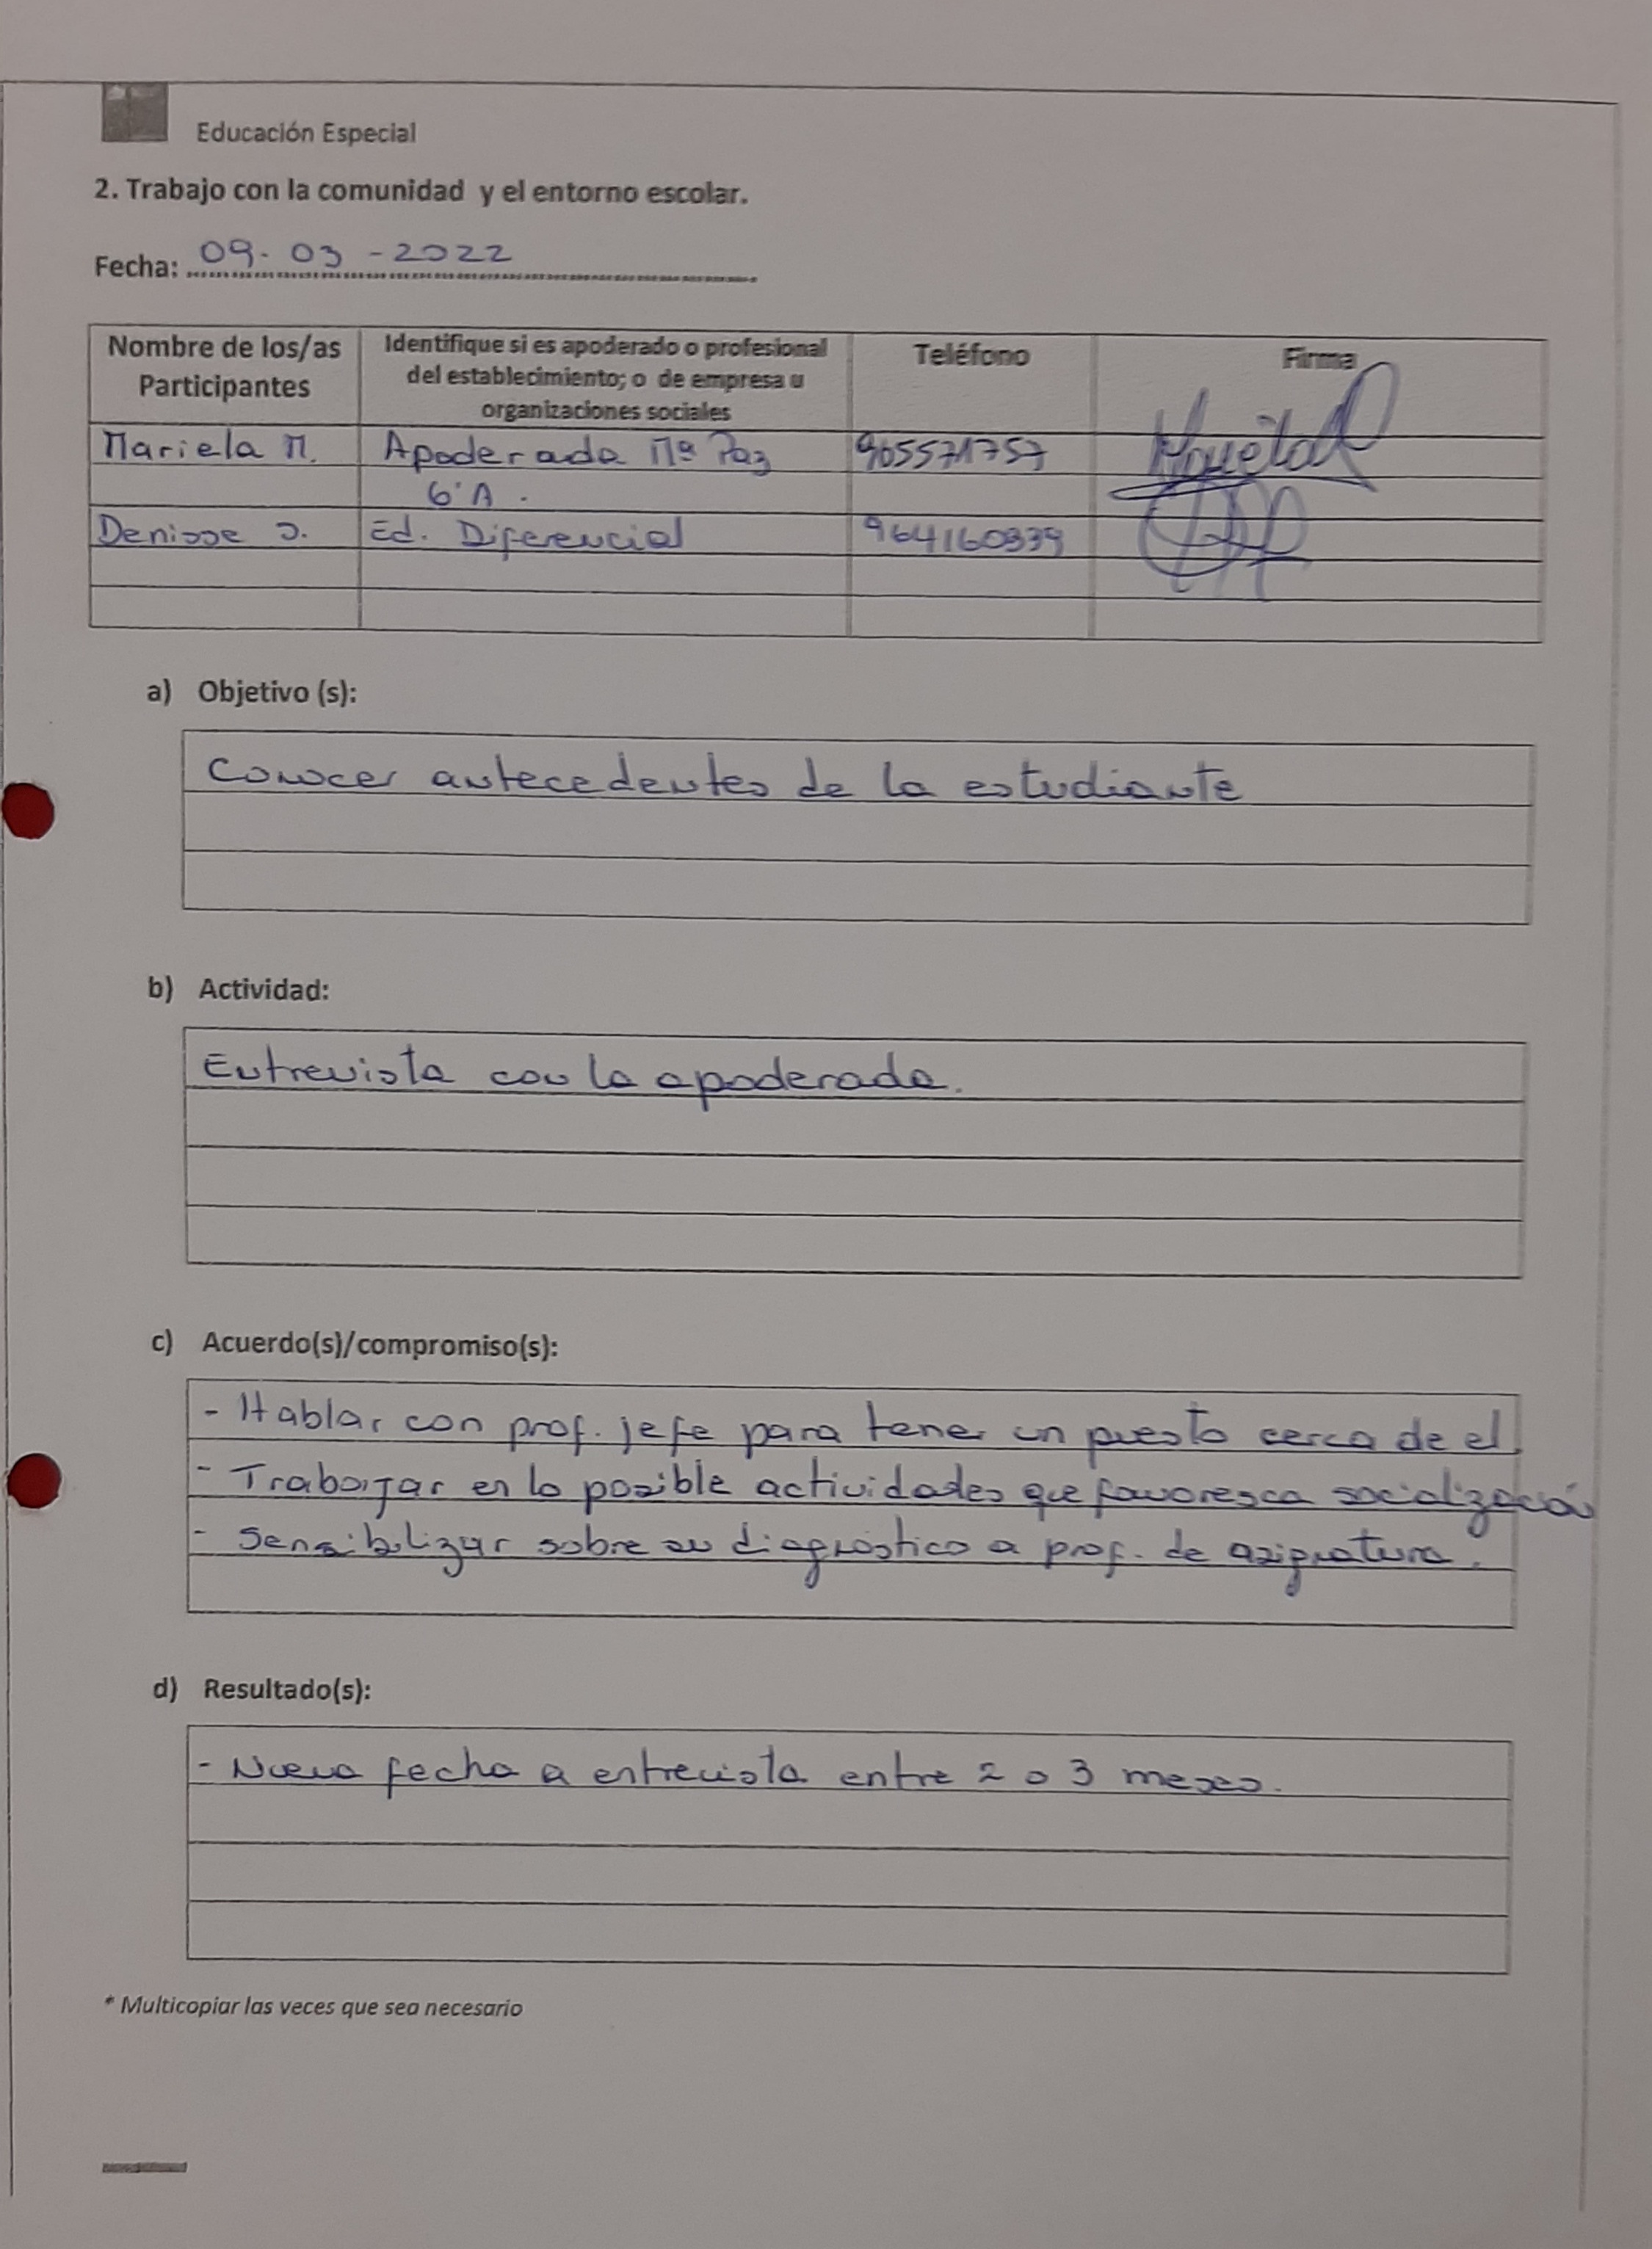 Educación Especial
2. Trabajo con la comunidad y el entorno escolar.
Fecha: 09-03-2022
Nombre de los/as Participantes | Identifique si es apoderado o profesional del establecimiento; o de empresa u organizaciones sociales | Teléfono | Firma
Mariela M. | Apoderada Mª Paz | 965571757
6°A.
Denisse J. | Ed. Diferencial | 964160339
a) Objetivo (s):
Conocer antecedentes de la estudiante
b) Actividad:
Entrevista con la apoderada.
c) Acuerdo(s)/compromiso(s):
- Hablar con prof. jefe para tener un puesto cerca de el.
- Trabajar en lo posible actividades que favoresca socialización
- Sensibilizar sobre su diagnóstico a prof. de asignatura.
d) Resultado(s):
- Nueva fecha a entrevista entre 2 o 3 meses.
* Multicopiar las veces que sea necesario